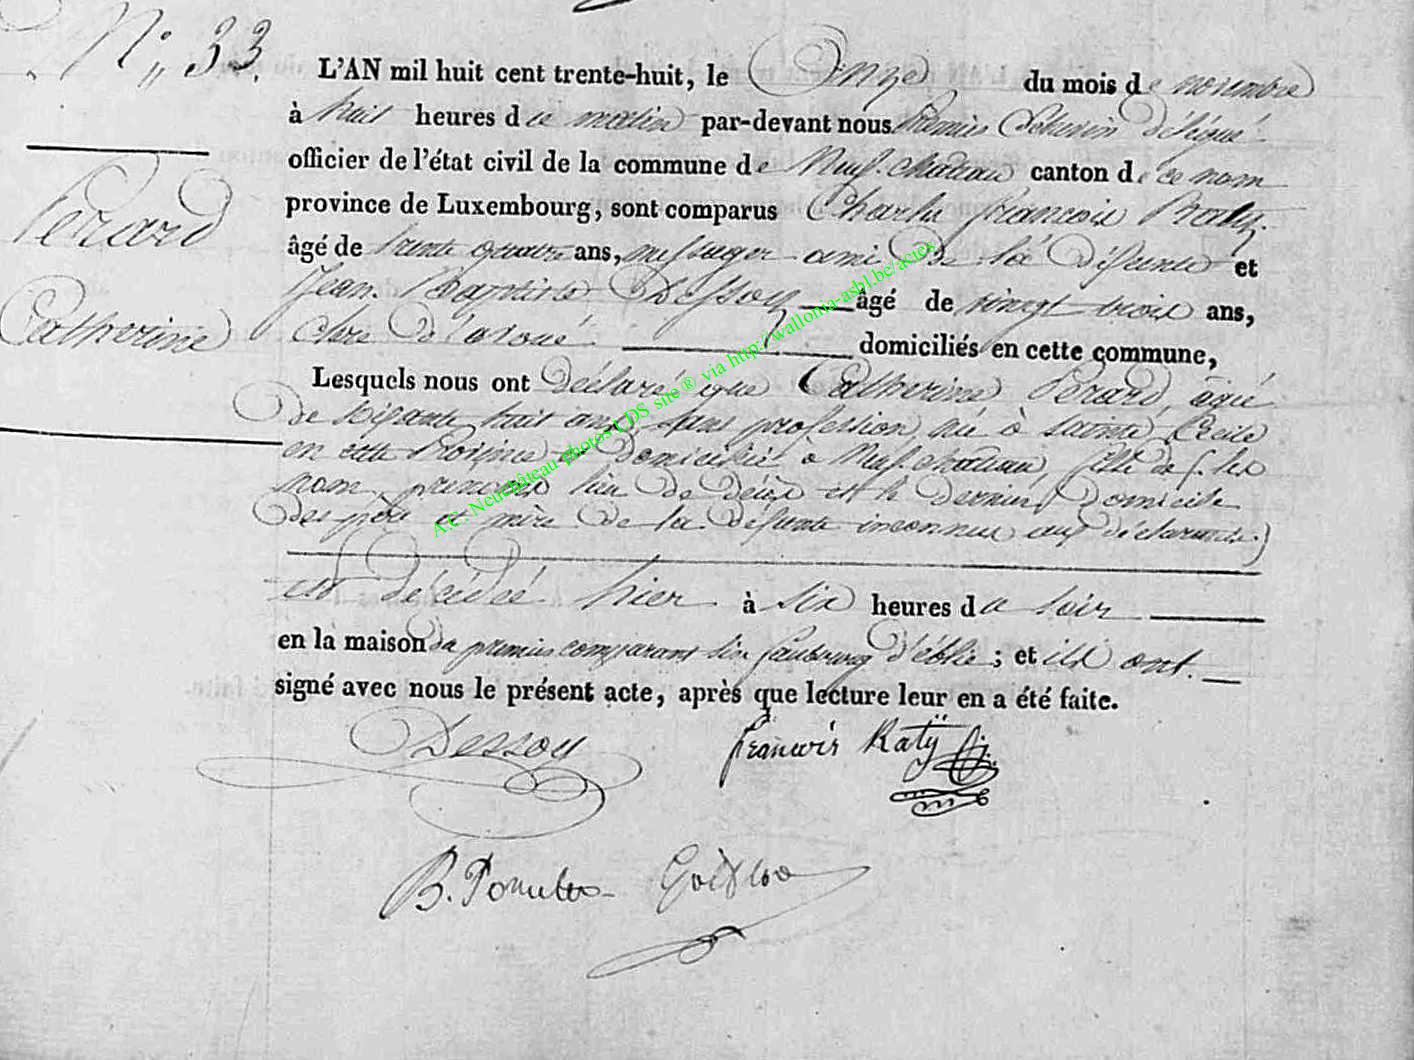 N° 33.
L'AN mil huit cent trente-huit, le Onze du mois de novembre
à huit heures du matin par-devant nous premier Echevin délégué
officier de l'état civil de la commune de Neufchateau canton de ce nom
province de Luxembourg, sont comparus Charles François Raty.
âgé de trente quatre ans, messager ami de la défunte et
Jean Baptiste Dessoy âgé de vingt trois ans,
Clerc d'avoué. domiciliés en cette commune,
Perard
Catherine
Lesquels nous ont déclaré que Catherine Perard, agée
de soixante huit ans, sans profession, née à Sainte Cecile
en cette Province et domiciliée à Neufchateau fille de (les
nom, prenoms lieu de décès et le dernier domicile
des père et mère de la défunte inconnus aux déclarants.)
est décédée hier à six heures du soir
en la maison du premier comparant sise faubourg ; et ils ont
signé avec nous le présent acte, après que lecture leur en a été faite.
Dessoy François Raty
B.
A.C. Neufchâteau Photos LDS site ® via http://wallonia-asbl.be/actes